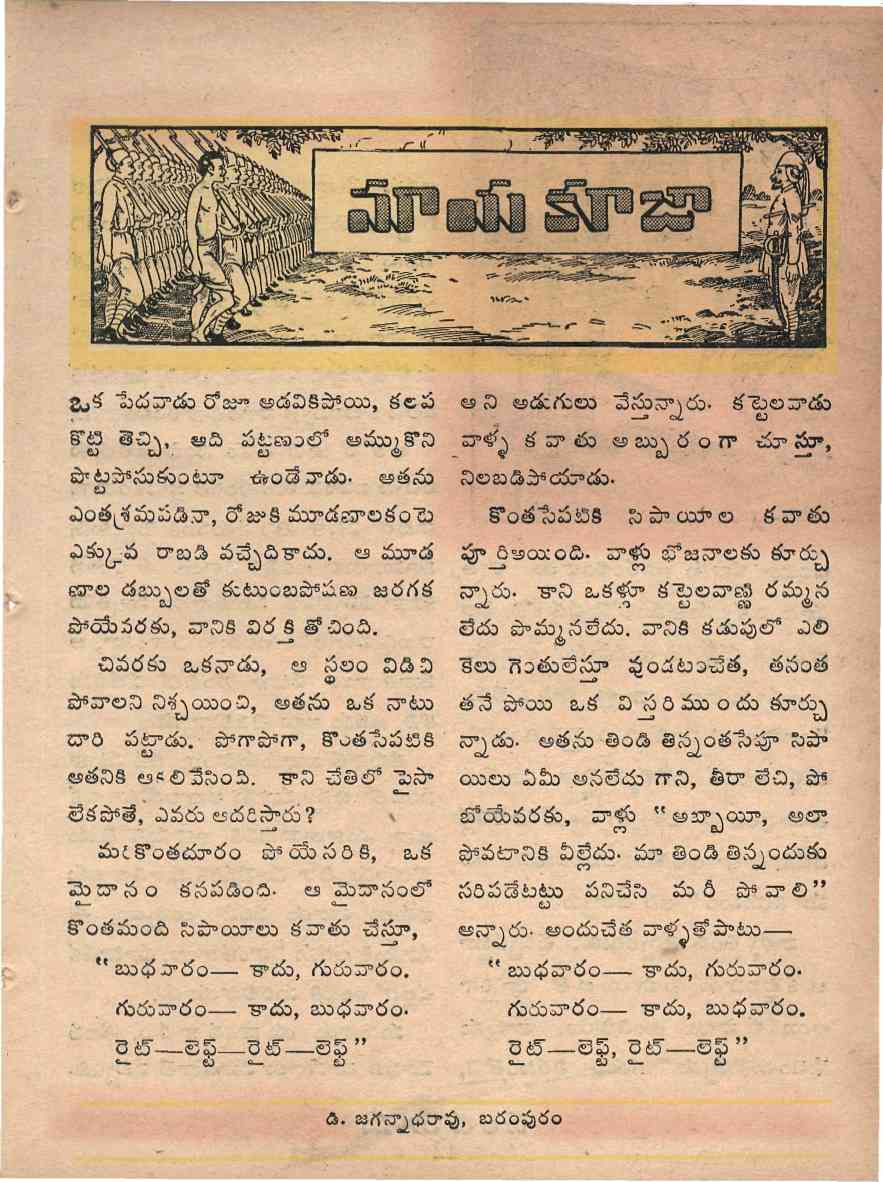 మాయ కూజా
ఒక పేదవాడు రోజూ అడవికిపోయి, కలప
కొట్టి తెచ్చి, అది పట్టణంలో అమ్ముకొని
పొట్టపోసుకుంటూ ఉండేవాడు. అతను
ఎంతశ్రమపడినా, రోజుకి మూడణాలకంటె
ఎక్కువ రాబడి వచ్చేదికాదు. ఆ మూడ
ణాల డబ్బులతో కుటుంబపోషణ జరగక
పోయేవరకు, వానికి విరక్తి తోచింది.
చివరకు ఒకనాడు, ఆ స్థలం విడిచి
పోవాలని నిశ్చయించి, అతను ఒక నాటు
దారి పట్టాడు. పోగాపోగా, కొంతసేపటికి
అతనికి ఆకలివేసింది. కాని చేతిలో పైసా
లేకపోతే, ఎవరు ఆదరిస్తారు?
మరికొంతదూరం పోయేసరికి, ఒక
మైదానం కనపడింది. ఆ మైదానంలో
కొంతమంది సిపాయీలు కవాతు చేస్తూ,
"బుధవారం— కాదు, గురువారం.
గురువారం— కాదు, బుధవారం.
రైట్—లెఫ్ట్—రైట్—లెఫ్ట్"
అని అడుగులు వేస్తున్నారు. కట్టెలవాడు
వాళ్ళ కవాతు అబ్బురంగా చూస్తూ,
నిలబడిపోయాడు.
కొంతసేపటికి సిపాయీల కవాతు
పూర్తిఅయింది. వాళ్లు భోజనాలకు కూర్చు
న్నారు. కాని ఒకళ్లూ కట్టెలవాణ్ణి రమ్మన
లేదు పొమ్మనలేదు. వానికి కడుపులో ఎలి
కెలు గెంతులేస్తూ వుండటంచేత, తనంత
తనే పోయి ఒక విస్తరిముందు కూర్చు
న్నాడు. అతను తిండి తిన్నంతసేపూ సిపా
యిలు ఏమీ అనలేదు గాని, తీరా లేచి, పో
బోయేవరకు, వాళ్లు "అబ్బాయీ, అలా
పోవటానికి వీల్లేదు. మా తిండి తిన్నందుకు
సరిపడేటట్టు పనిచేసి మరీ పోవాలి"
అన్నారు. అందుచేత వాళ్ళతోపాటు—
"బుధవారం— కాదు, గురువారం.
గురువారం— కాదు, బుధవారం.
రైట్—లెఫ్ట్, రైట్—లెఫ్ట్"
డి. జగన్నాధరావు, బరంపురం